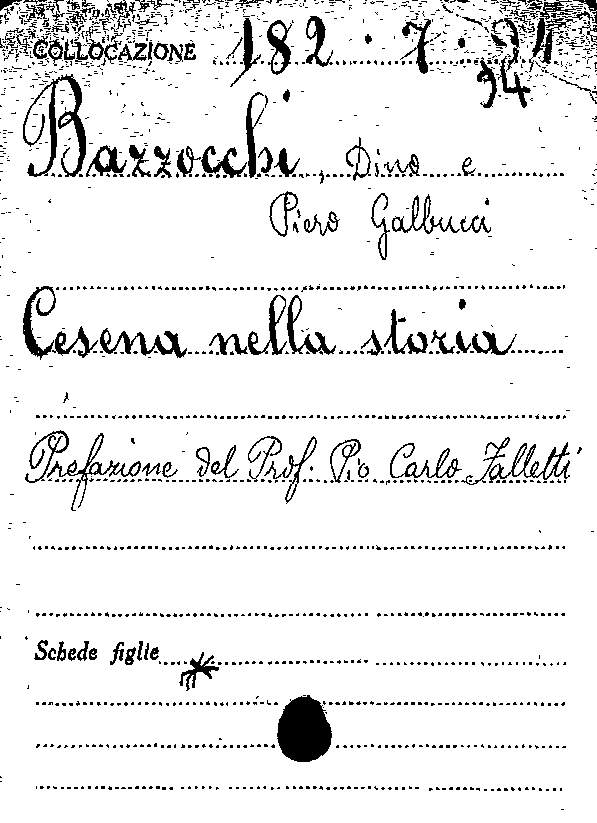 COLLOCAZIONE 182.7.94
94
Bazzocchi, Dino e
Piero Galbucci
Cesena nella storia
Prefazione del Prof. Pio Carlo Falletti
Schede figlie